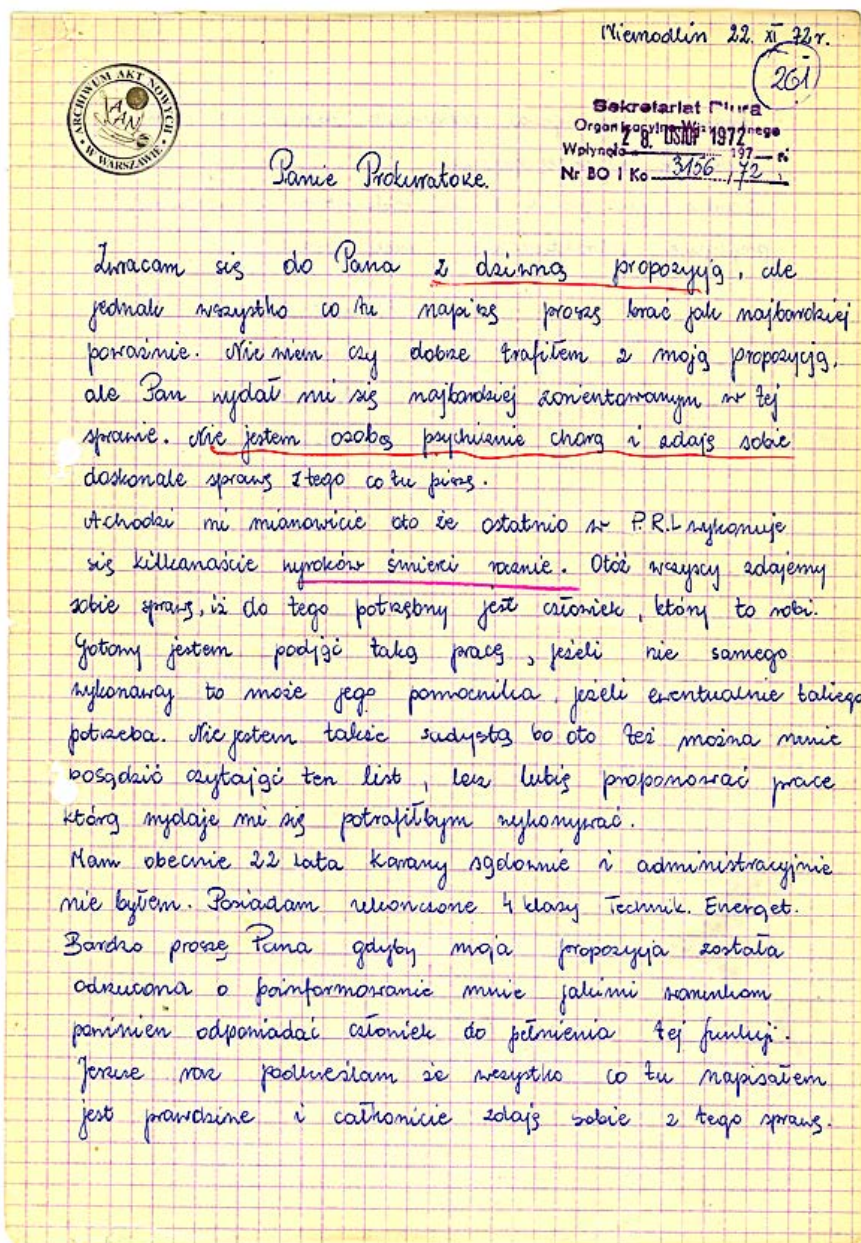 Niemodlin 22. XI 72r.
261
ARCHIWUM AKT NOWYCH
AAN
• W WARSZAWIE •
Sekretariat Biura
28. LISTOP 1972
Wpłynęło 197 r.
Nr BO I Ko 3156 / 72
Panie Prokuratoże.
Zwracam się do Pana z dziwną propozycją, ale
jednak wszystko co tu napiszę proszę brać jak najbardziej
poważnie. Nie wiem czy dobrze trafiłem z moją propozycją,
ale Pan wydał mi się najbardziej zorientowanym w tej
sprawie. Nie jestem osobą psychicznie chorą i zdaję sobie
doskonale sprawę z tego co tu piszę.
A chodzi mi mianowicie oto że ostatnio w P.R.L wykonuje
się kilkanaście wyroków śmierci rocznie. Otóż wszyscy zdajemy
sobie sprawę, iż do tego potrzębny jest człowiek, który to robi.
Gotowy jestem podjąć taką pracę, jeżeli nie samego
wykonawcy to może jego pomocnika, jeżeli ewentualnie takiego
potrzeba. Nie jestem także sadystą bo oto też można mnie
posądzić czytając ten list, lecz lubię proponować prace
którą wydaje mi się potrafiłbym wykonywać.
Mam obecnie 22 lata karany sądownie i administracyjnie
nie byłem. Posiadam ukończone 4 klasy Technik. Energet.
Bardzo proszę Pana gdyby moja propozycja została
odrzucona o poinformowanie mnie jakimi warunkom
powinien odpowiadać człowiek do pełnienia tej funkcji.
Jeszcze raz podkreślam że wszystko co tu napisałem
jest prawdziwe i całkowicie zdaję sobie z tego sprawę.